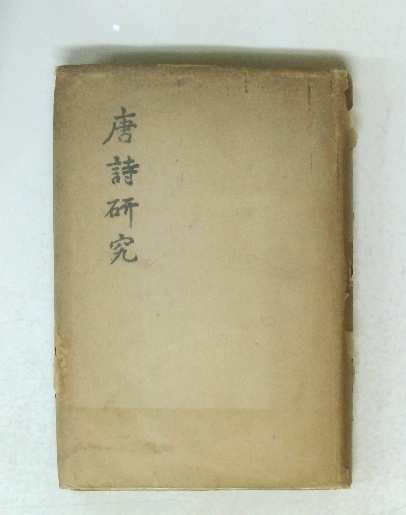 唐詩研究